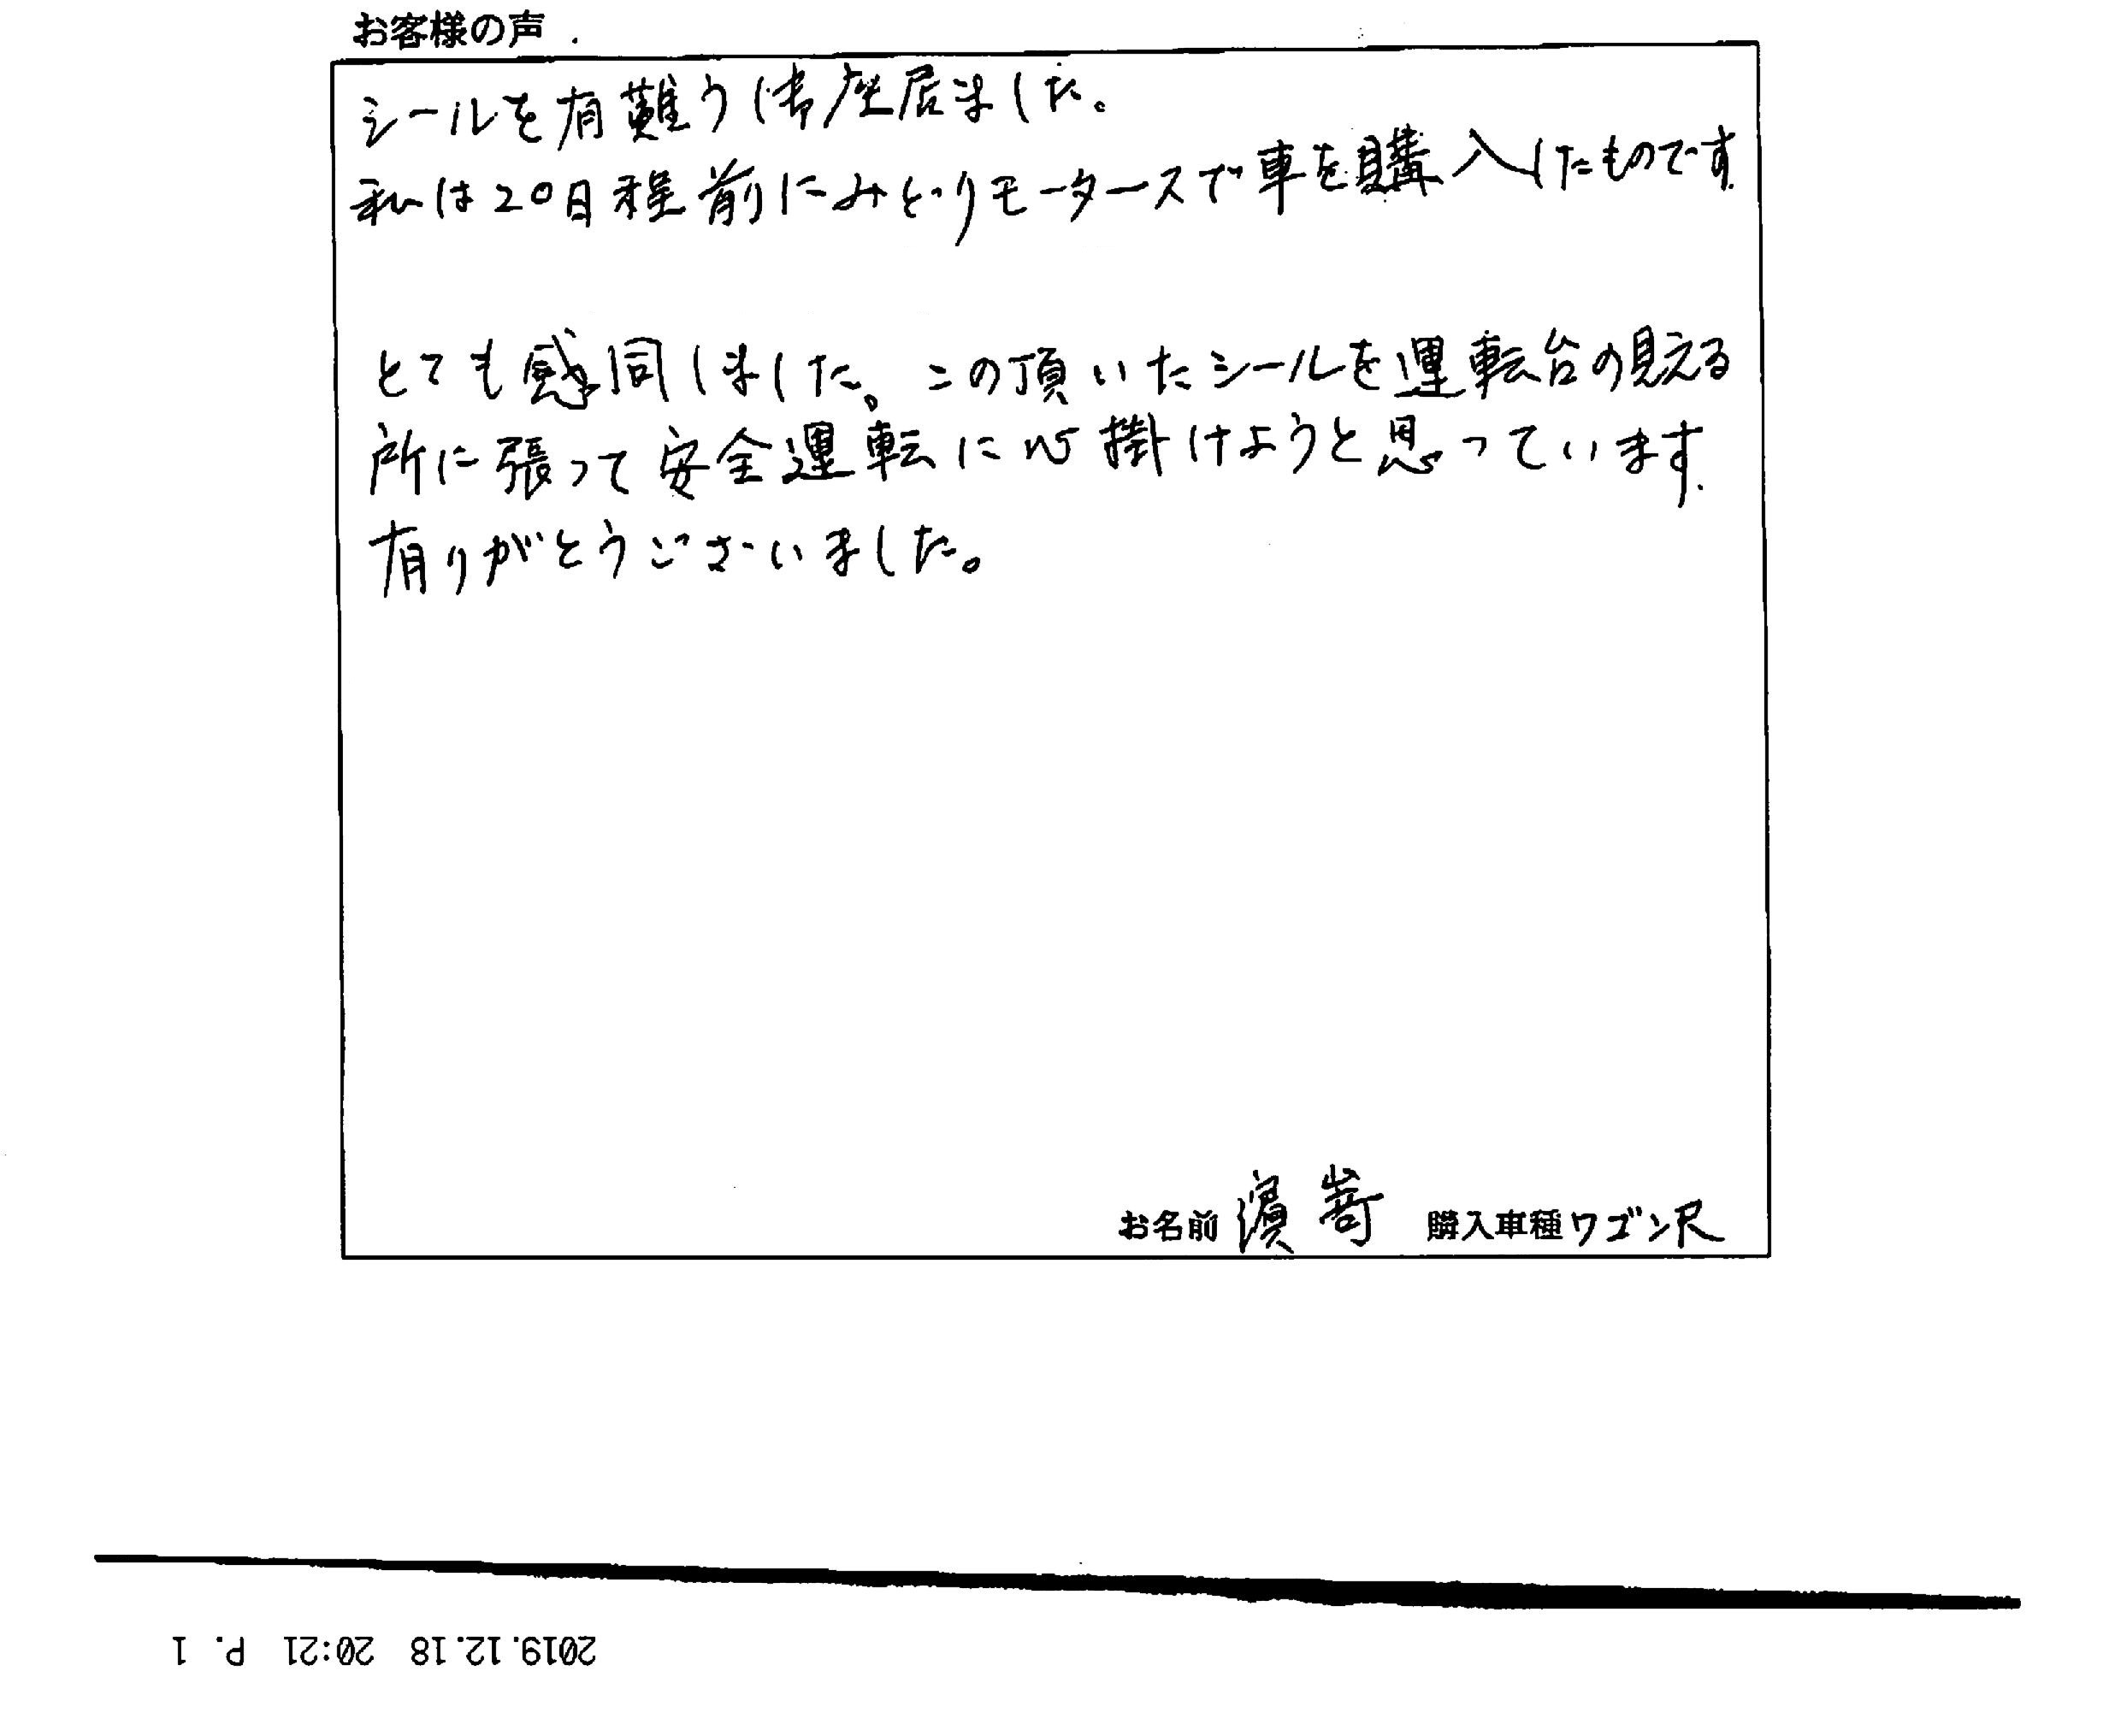 お客様の声
シールを有難う御座居ました。
私は20日程前にみどりモータースで車を購入したものです。
とても感同しました。この頂いたシールを運転台の見える
所に張って安全運転に心掛けようと思っています。
有りがとうございました。
お名前 濱嵜 購入車種 ワゴンR
2019.12.18 20:21 P. 1